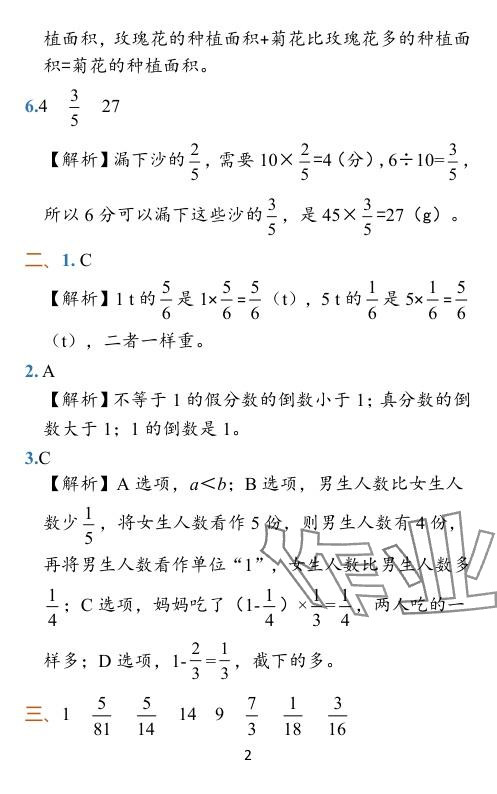 植面积，玫瑰花的种植面积+菊花比玫瑰花多的种植面
积=菊花的种植面积。
6.4 3/5 27
【解析】漏下沙的2/5，需要 10×2/5=4（分），6÷10=3/5，
所以 6 分可以漏下这些沙的3/5，是 45×3/5=27（g）。
二、1. C
【解析】1 t 的5/6是 1×5/6=5/6（t），5 t 的1/6是 5×1/6=5/6
（t），二者一样重。
2. A
【解析】不等于 1 的假分数的倒数小于 1；真分数的倒
数大于 1；1 的倒数是 1。
3.C
【解析】A 选项，a＜b；B 选项，男生人数比女生人
数少1/5，将女生人数看作 5 份，则男生人数有 4 份，
再将男生人数看作单位“1”，女生人数比男生人数多
1/4；C 选项，妈妈吃了（1-1/4）×1/3=1/4，两人吃的一
样多；D 选项，1-2/3=1/3，截下的多。
三、1 5/81 5/14 14 9 7/3 1/18 3/16
2
作业